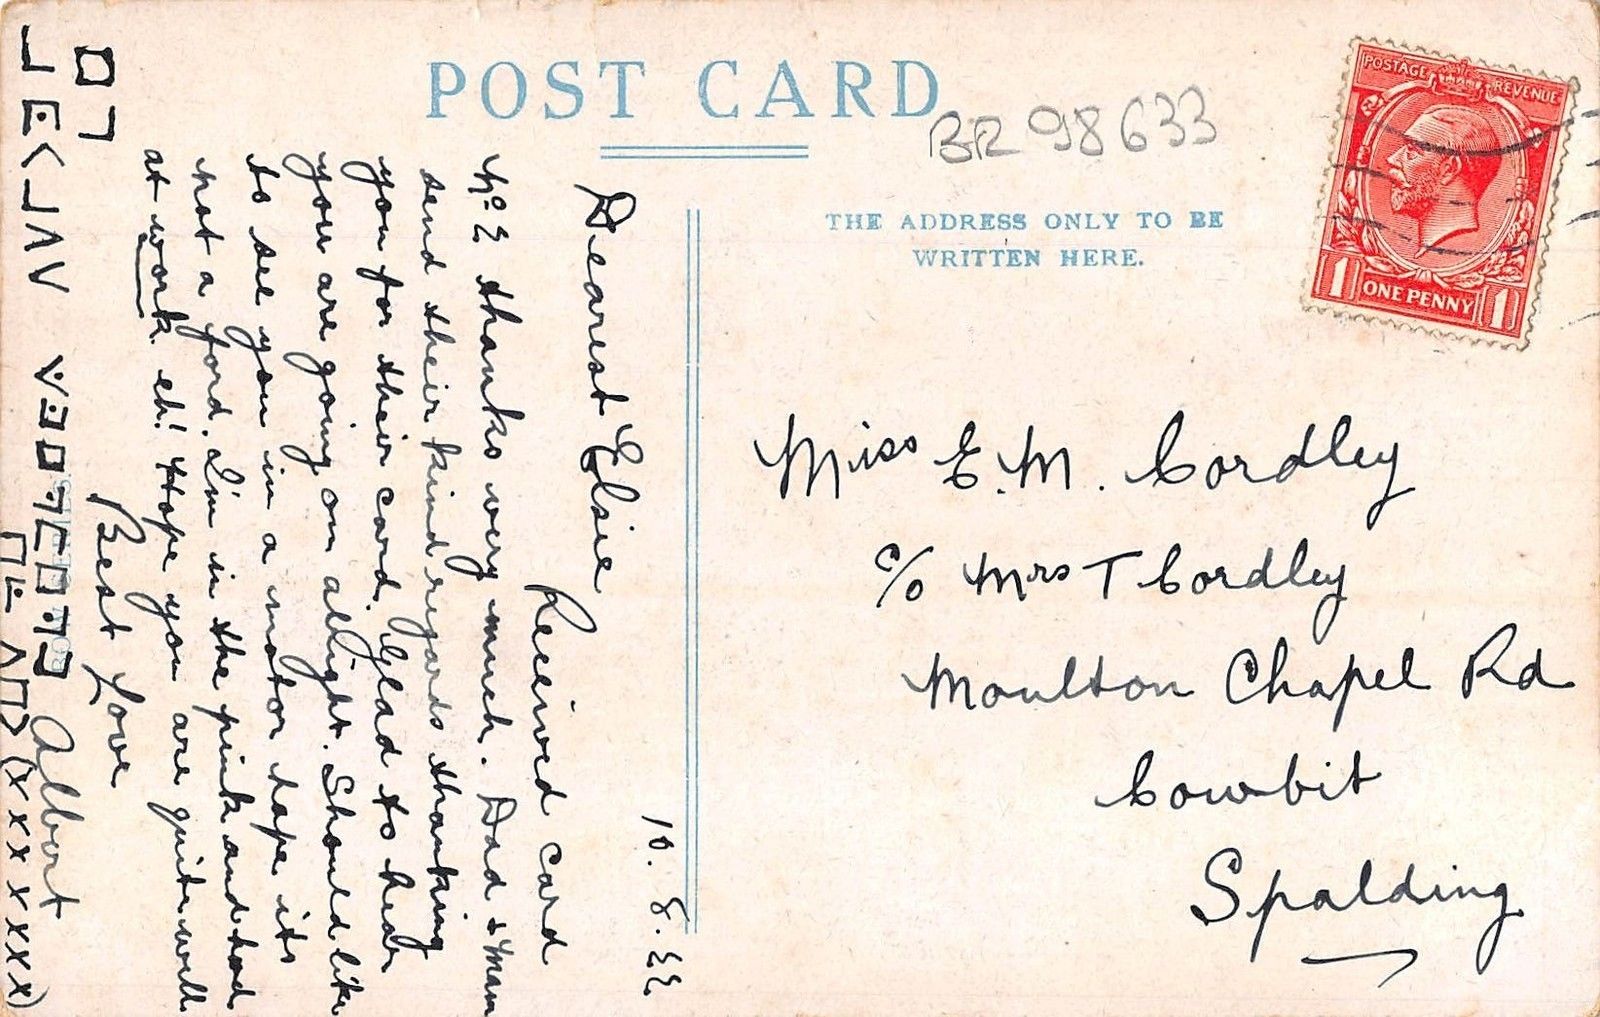 POST CARD
BR 98633
POSTAGE REVENUE
1 ONE PENNY 1
THE ADDRESS ONLY TO BE
WRITTEN HERE.
Miss E. M. Cordley
c/o Mrs T Cordley
Moulton Chapel Rd
Cowbit
Spalding
10. 8. 22
Dearest Elsie
Received card
No 2 thanks very much. Dad & Mam
send their kind regards thanking
you for their card. Glad to hear
you are going on allright. Should like
to see you in a motor hope its
not a ford. I'm in the pink and
at work eh! Hope you are quite well
Best Love
Albert
(x x x x x x x)